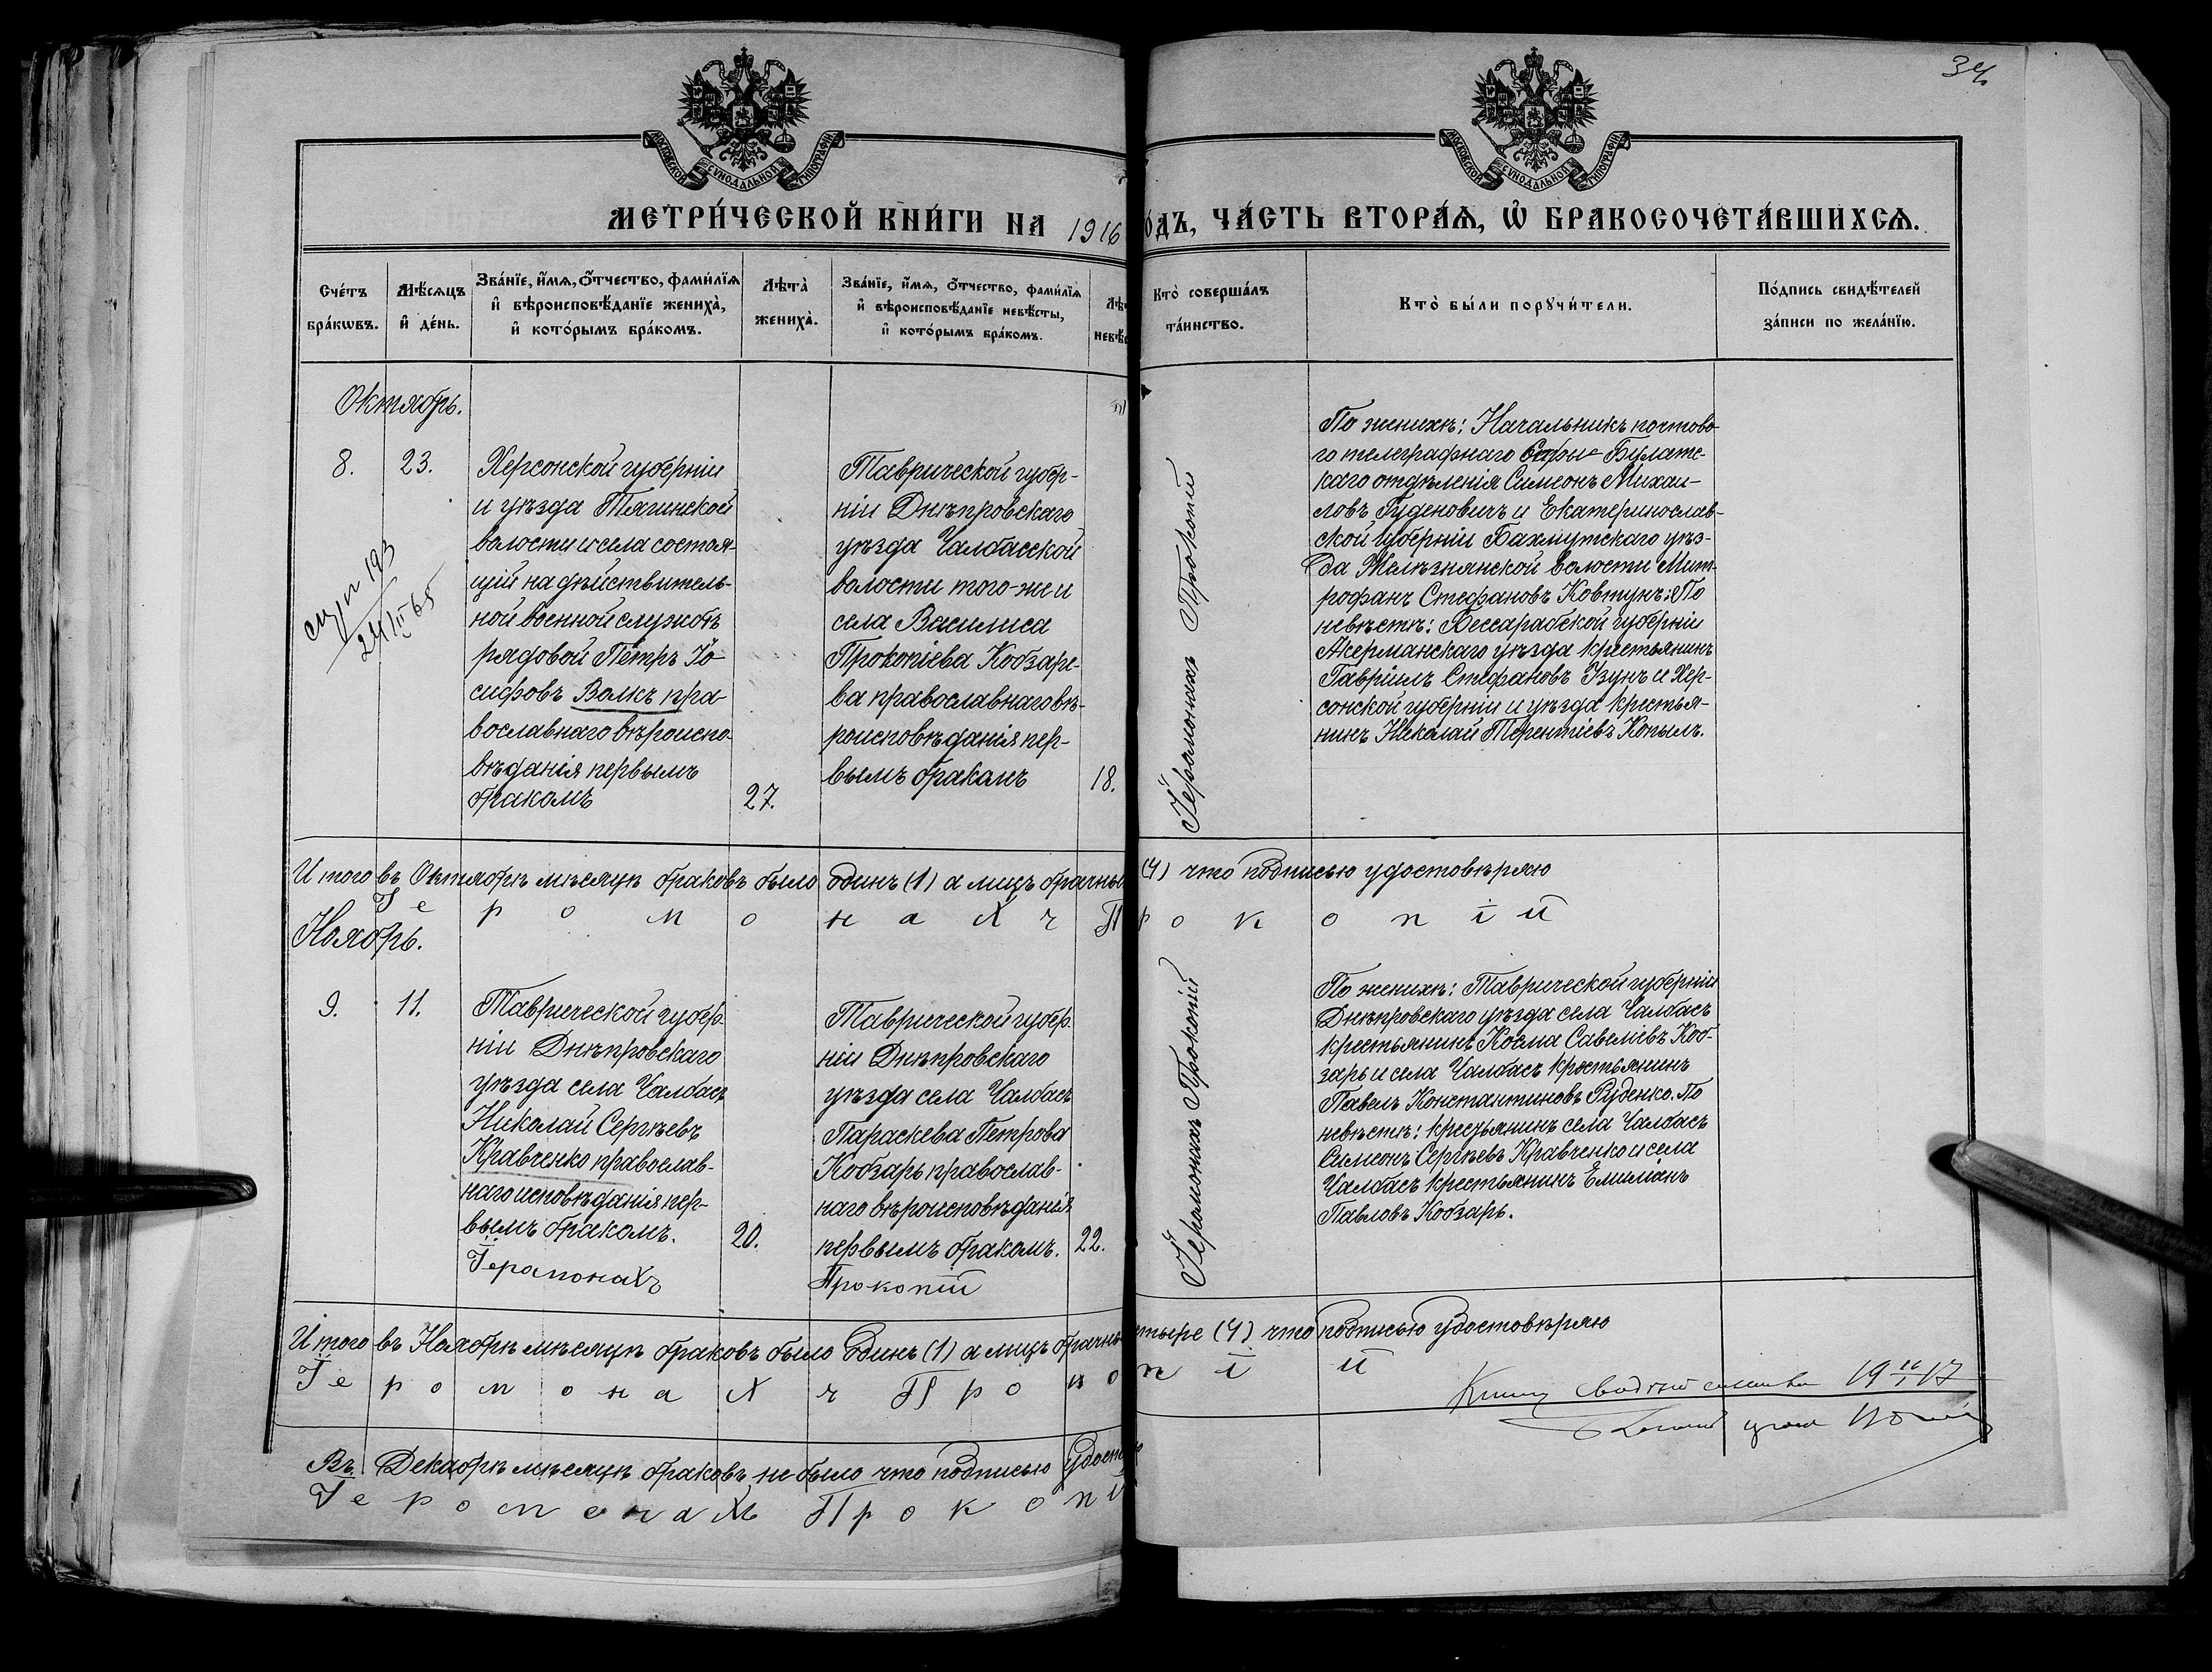 34
МОСКОВСКОЙ СѴНОДАЛЬНОЙ ТИПОГРАФІИ
МОСКОВСКОЙ СѴНОДАЛЬНОЙ ТИПОГРАФІИ
МЕТРИ́ЧЕСКОЙ КНИ́ГИ НА 1916
О́ДЪ, ЧА́СТЬ ВТОРА́Я, Ѽ БРАКОСОЧЕТА́ВШИХСЯ.
Сче́тъ
бра́кѡвъ.
Мѣ́сяцъ
и҆ де́нь.
Зва́нїе, и҆́мя, ѻ҆́тчество, фами́лїя
и҆ вѣроисповѣ́данїе жениха̀,
и҆ кото́рымъ бра́комъ.
Лѣта̀
жениха̀.
Зва́нїе, и҆́мя, ѻ҆́тчество, фами́лїя
и҆ вѣроисповѣ́данїе невѣ́сты,
и҆ кото́рымъ бра́комъ.
Лѣ
невѣ
Кто̀ соверша́лъ
та́инство.
Кто̀ бы́ли порꙋчи́тели.
По́дпись свидѣ́телей
за́писи по жела́нїю.
Октябрь.
8.
23.
193
24/III 65
Херсонской губерніи
и уѣзда Тягинской
волости и села состоя-
щій на дѣйствитель-
ной военной службѣ
рядовой Петръ Іо-
сифовъ Волкъ пра-
вославнаго вѣроиспо-
вѣданія первымъ
бракомъ
27.
Таврической губер-
ніи Днѣпровскаго
уѣзда Чалбасской
волости того-же и
села Василиса
Прокопіева Кобзаре-
ва православнаго вѣ-
роисповѣданія пер-
вымъ бракомъ
18.
Іеромонахъ Прокопій
По женихѣ: Начальникъ почтово-
го телеграфнаго Булате-
каго отдѣленія Симеонъ Михаи-
ловъ Гуденовичъ и Екатеринослав-
ской губерніи Бахмутскаго уѣз-
да Желѣзнянской волости Мит-
рофанъ Стефановъ Ковтунъ: По
невѣстѣ: Бессарабской губерніи
Акерманскаго уѣзда крестьянинъ
Гавріилъ Стефановъ Узунъ и Хер-
сонской губерніи и уѣзда крестья-
нинъ Николай Терентіевъ Копылъ.
Итого въ Октябрѣ мѣсяцѣ браковъ было одинъ (1) а лицъ брачны
(4) что подписью удостовѣряю
Іеромонахъ Прокопій
Ноябрь.
9.
11.
Таврической губер-
ніи Днѣпровскаго
уѣзда села Чалбасъ
Николай Сергѣевъ
Кравченко православ-
наго исповѣданія пер-
вымъ бракомъ.
20.
Іеромонахъ
Таврической губер-
ніи Днѣпровскаго
уѣзда села Чалбасъ
Параскева Петрова
Кобзарь православ-
наго вѣроисповѣданія
первымъ бракомъ.
22.
Прокопій
Іеромонахъ Прокопій
По женихѣ: Таврической губерніи
Днѣпровскаго уѣзда села Чалбасъ
крестьянинъ Косма Савеліевъ Коб-
зарь и села Чалбасъ крестьянинъ
Павелъ Константиновъ Руденко. По
невѣстѣ: крестьянинъ села Чалбасъ
Симеонъ Сергѣевъ Кравченко и села
Чалбасъ крестьянинъ Емиліанъ
Павловъ Кобзарь.
Итого въ Ноябрѣ мѣсяцѣ браковъ было одинъ (1) а лицъ брачны
тыре (4) что подписью удостовѣряю
Іеромонахъ Прокопій
Въ Декабрѣ мѣсяцѣ браковъ не было что подписью удосто
Іеромонахъ Прокопі